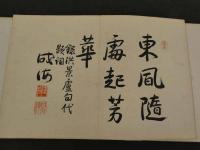 東風隨
處起芳
華
錄洪景盧句代
題詞